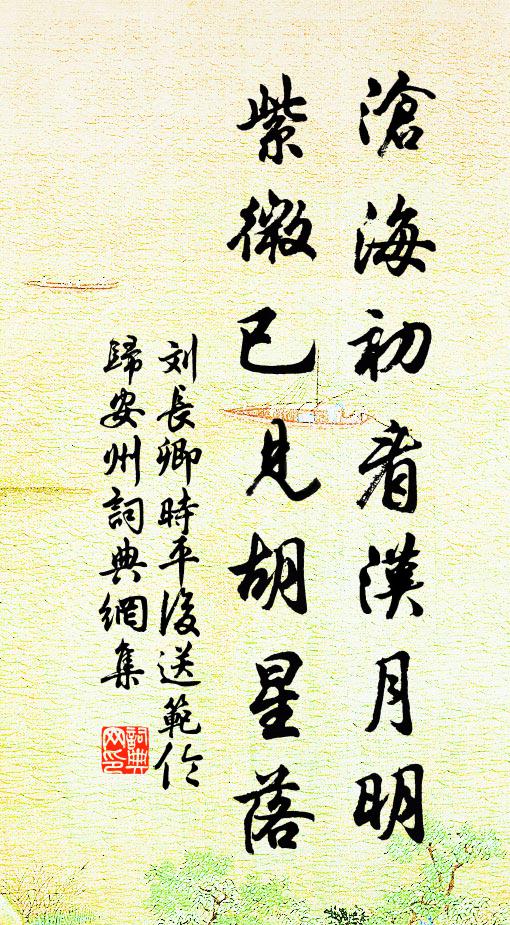 滄海初看漢月明
紫微已見胡星落
刘長卿時平後送範伦
歸安州詞典網集
詞典网印